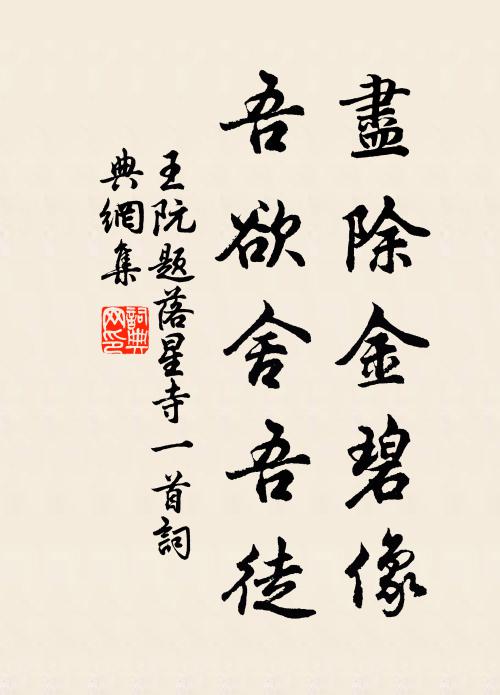 盡除金碧像
吾欲舍吾徒
王阮题落星寺一首詞
典網集
詞典
网印